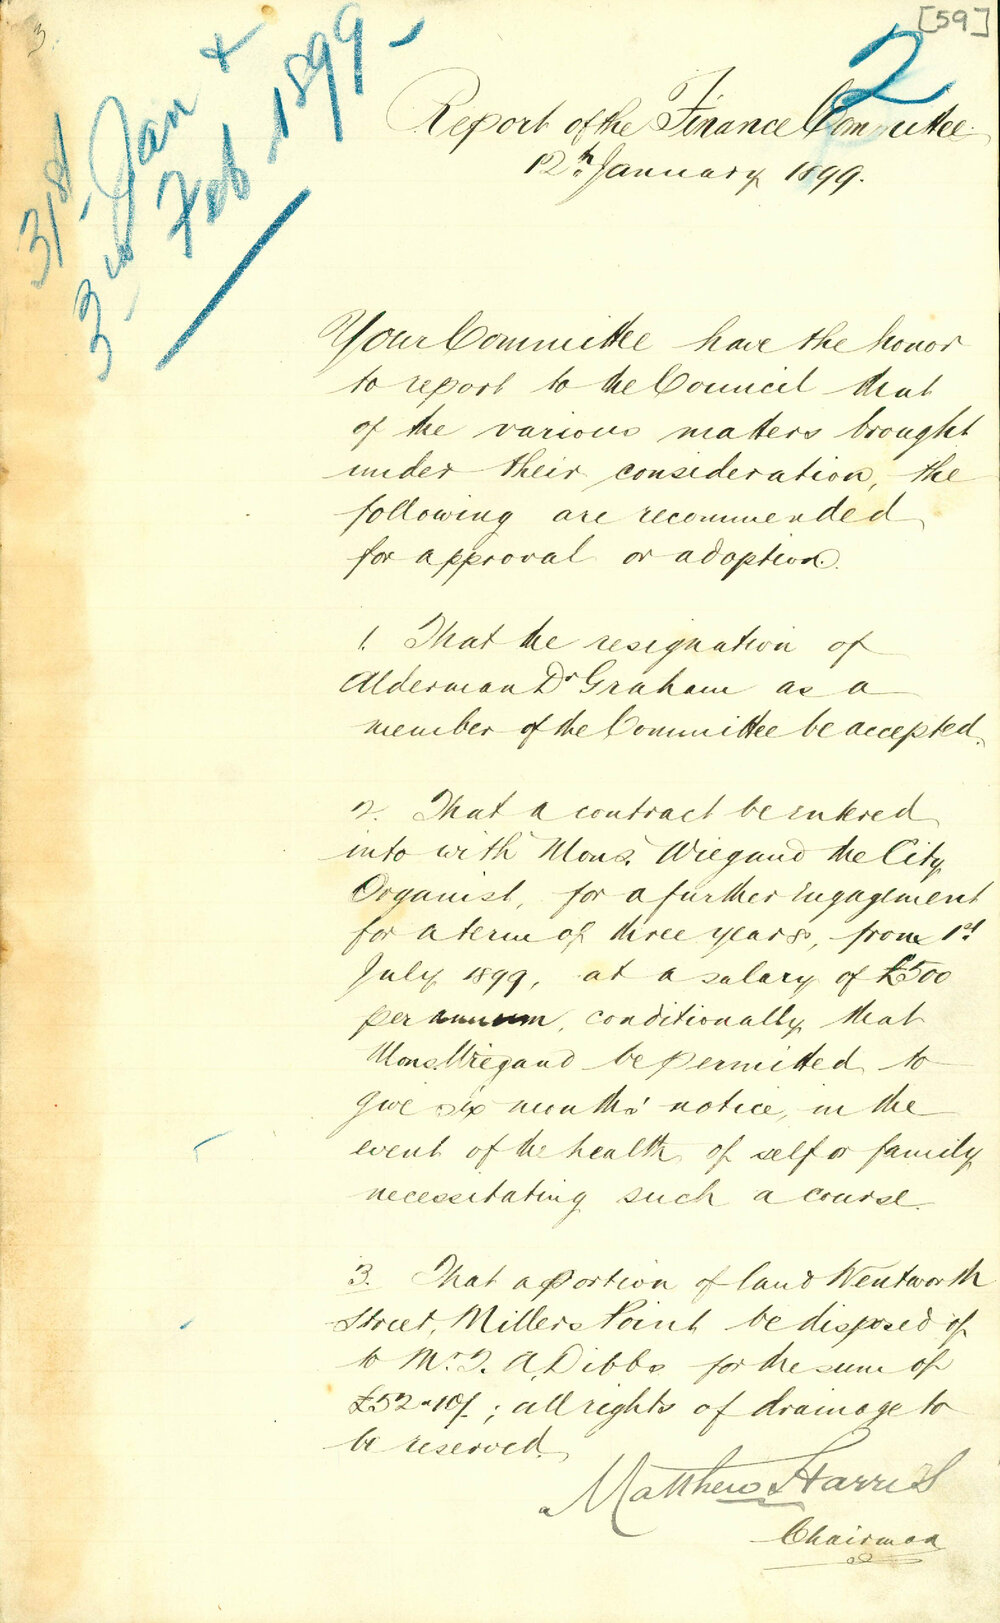 [59]
3.
2
31st Jan &
3rd Feb 1899
Report of the Finance Committee
12th January 1899.
Your Committee have the honor
to report to the Council that
of the various matters brought
under their consideration, the
following are recommended
for approval or adoption.
1. That the resignation of
Alderman Dr Graham as a
member of the Committee be accepted.
2. That a contract be entered
into with Mons. Wiegand the City
Organist, for a further engagement
for a term of three years, from 1st
July 1899, at a salary of £500
per annum, conditionally that
Mons. Wiegand be permitted to
give six months' notice, in the
event of the health of self or family
necessitating such a course.
3. That a portion of land Wentworth
Street, Millers Point be disposed of
to Mr. T. A. Dibbs for the sum of
£52-10/; all rights of drainage to
be reserved.
Matthew Harris
Chairman